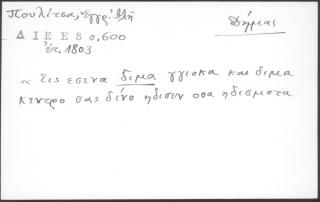 Πουλίτσα, Ἔγγρ. Ἀλῆ
Δῆμας
Δ Ι Ε Ε 8 σ, 600
ἔτ. 1803
« Σις εσενα διμα γγιοκα και διμα
κεντρο σας δίνο ηδισιν οσα ηδισματα